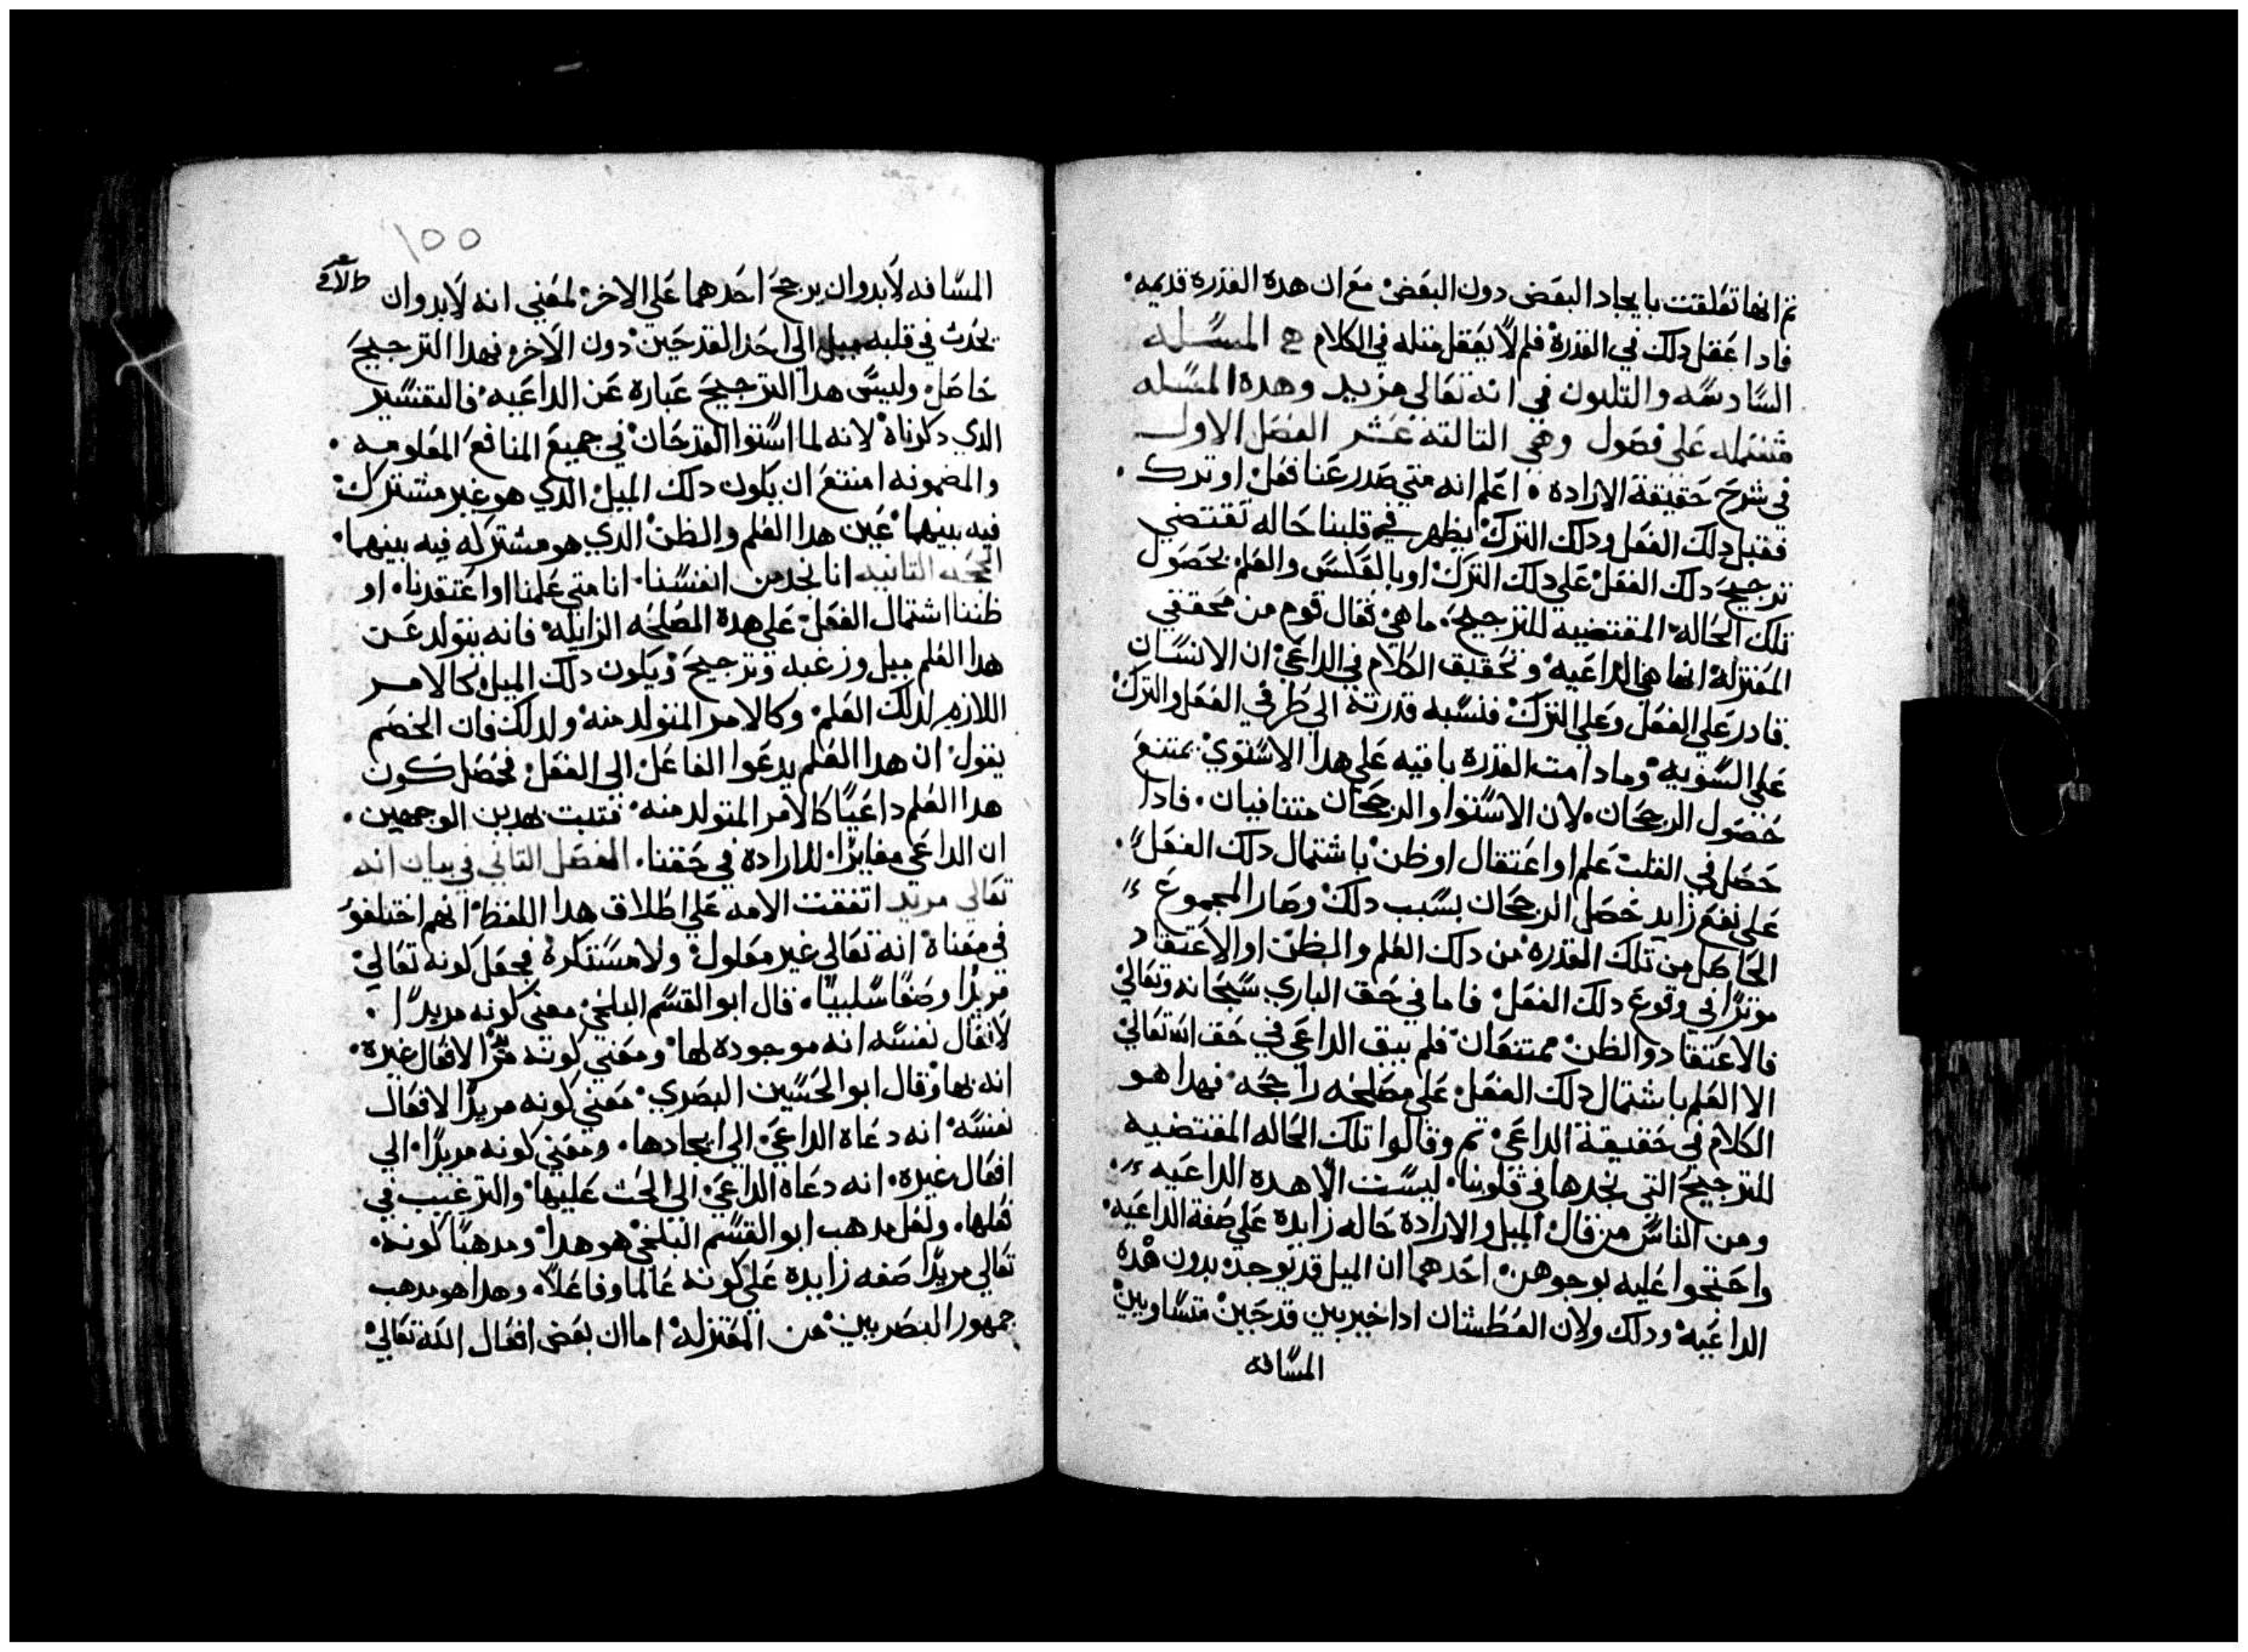 تم انها تعلقت بايجاد البعض دون البعض مع ان هده القدره قديمه
فادا عقل دلك في القدرة فلم لا يعقل متله في الكلام المسله
السادسه والتلتون في انه تعالى مريد وهده المسله
مشتمله على فصول وهي التالته عشر الفصل الاول
في شرح حقيقة الاراده اعلم انه متي صدر عنا فعل او ترك
فقبل دلك الفعل ودلك الترك يظهر في قلبنا حاله تقتضي
ترجيح دلك الفعل على دلك الترك او بالعكس والعلم بحصول
تلك الحاله المقتضيه للترجيح ما هي فقال قوم من محققي
المعتزله انها هي الداعيه وتحقيق الكلام في الداعي ان الانسان
قادر علي الفعل وعلي الترك فنسبه قدرته الي طرفي الفعل والترك
علي السويه وما دامت القدره باقيه علي هدا الاستوي يمتنع
حصول الرجحان لان الاستوا والرجحان متنافيان فادا
حصل في القلب علم او اعتقاد او ظن باشتمال دلك الفعل
علي نفع زايد حصل الرجحان بسبب دلك وصار المجموع
الحاصل من تلك القدره من دلك العلم والظن او الاعتقاد
موترا في وقوع دلك الفعل فاما في حق الباري سبحانه وتعالي
فالاعتقاد والظن ممتنعان فلم يبق الداعي في حق الله تعالي
الا العلم باشتمال دلك الفعل علي مصلحه راجحه فهدا هو
الكلام في حقيقة الداعي تم وقالوا تلك الحاله المقتضيه
للترجيح التي نجدها في قلوبنا ليست الا هده الداعيه
ومن الناس من قال الميل والارادة حاله زايدة علي صفة الداعيه
واحتجوا عليه بوجوهن احدهما ان الميل قد توجد بدون هده
الداعيه ودلك ولان العطشان ادا خير بين قدحين متساويين
المسافه
١٥٥
المسافه لابد وان يرجح احدهما علي الاخر لمعني انه لابد وان
يحدث في قلبه ميل الي احد القدحين دون الاخر فهدا الترجيح
حاصل وليس هدا الترجيح عباره عن الداعيه فالتفسير
الدي دكرناه لانه لما استوا القدحان في جميع المنافع المعلومه
والمضمونه امتنع ان يكون دلك الميل الدي هو غير مشترك
فيه بينهما عين هدا العلم والظن الدي هو مشترك فيه بينهما
الحجه التانيه انا نجد من انفسنا انا متي علمنا او اعتقدنا او
ظننا اشتمال الفعل علي هدة المصلحه الزايله فانه يتولد عن
هدا العلم ميل ورغبه وترجيح ويكون دلك الميل كالامر
اللازم لدلك العلم وكالامر المتولد منه ولدلك فان الخصم
يقول ان هدا العلم يدعوا الفاعل الى الفعل فحصل كون
هدا العلم داعيا كالامر المتولد منه فتبت بهدين الوجهين
ان الداعي مغايرا للارادة في حقنا الفصل التاني في بيان انه
تعالي مريد اتفقت الامه علي اطلاق هدا اللفظ انهم اختلفوا
في معناة انه تعالي غير معلول ولا مستكره فجعل كونه تعالي
مريدا وصفا سلبيا قال ابو القسم البلخي معني كونه مريدا
لافعال نفسه انه موجودة لها ومعني كونه مريدا لافعال غيره
انه بها وقال ابو الحسين البصري معني كونه مريدا لافعال
نفسه انه دعاه الداعي الي ايجادها ومعني كونه مريدا الي
افعال غيره انه دعاه الداعي الى الحث عليها والترغيب في
فعلها ولعل مدهب ابو القسم البلخي هو هدا ومدهبنا كونه
تعالي مريدا صفه زايدة علي كونه عالما وفاعلا وهدا هو مدهب
جمهور البصريين من المعتزله اما ان بعض افعال الله تعالي